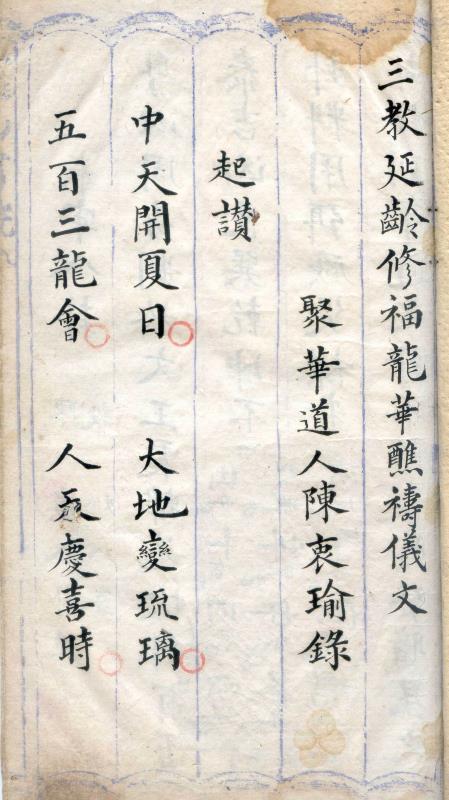 三教延齡修福龍華醮禱儀文
聚華道人陳衷瑜錄
起讃
中天開夏日 大地變琉璃
五百三龍會 人慶喜時